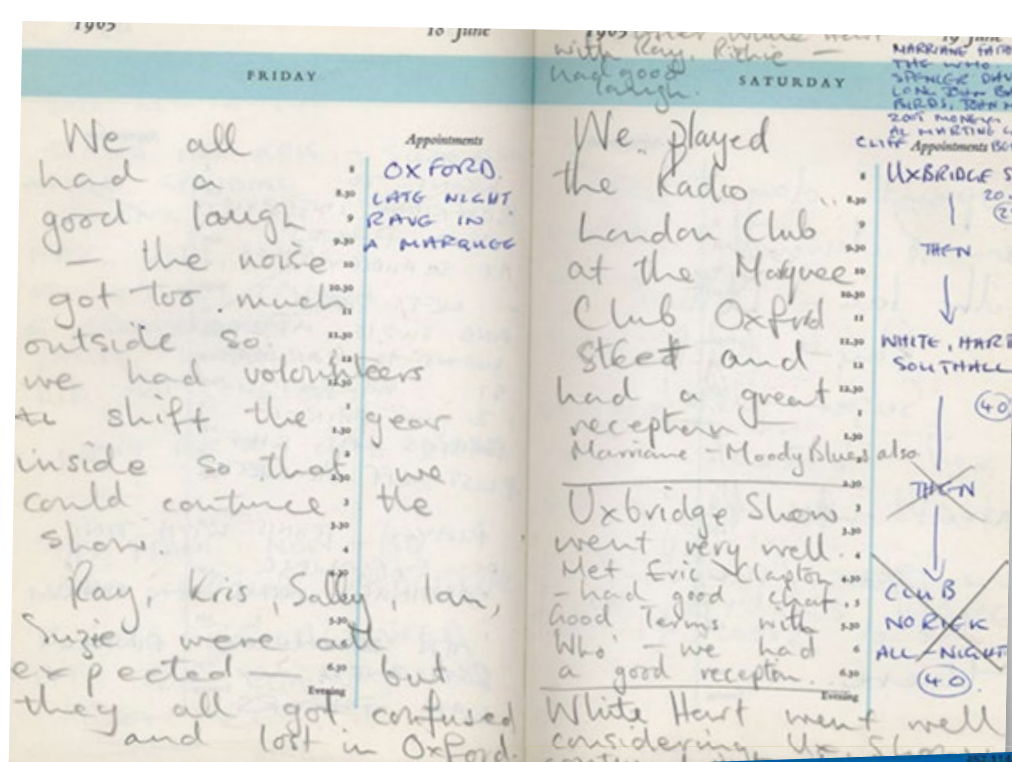 1965
18 June
FRIDAY
We all
had a
good laugh
— the noise
got too much
outside so
we had volounteers
to shift the gear
inside so that we
could continue the
show.
Ray, Kris, Sally, Ian,
Suzie were all
expected — but
they all got confused
and lost in Oxford.
Appointments
8
8.30
9
9.30
10
10.30
11
11.30
12
12.30
1
1.30
2
3
3.30
4
4.30
5.30
6
6.30
Evening
OXFORD.
LATE NIGHT
RAVE IN
A MARQUEE
1965
19 June
White Hart
with Ray, Ritchie —
had good
laugh.
SATURDAY
We played
the Radio
London Club
at the Marquee
Club Oxford
Street and
had a great
reception —
Marriane - Moody Blues also
Uxbridge Show
went very well.
Met Eric Clapton
- had good chat.
Good Terms with
Who - we had
a good reception.
White Hart went well
considering Ux. Show
Appointments
8
8.30
9
9.30
10
10.30
11
11.30
12
12.30
1
1.30
2.30
3
3.30
4
4.30
5
5.30
6
6.30
Evening
MARRIANE
THE WHO.
SPENCER
LONG JOHN
BIRDS, JOHN
ZOOT MONEY
AL MARTINO
CLIFF
UXBRIDGE
20.
THEN
WHITE, HART
SOUTHALL
40
THEN
CLUB
NOREIK
ALL-NIGHT
40.